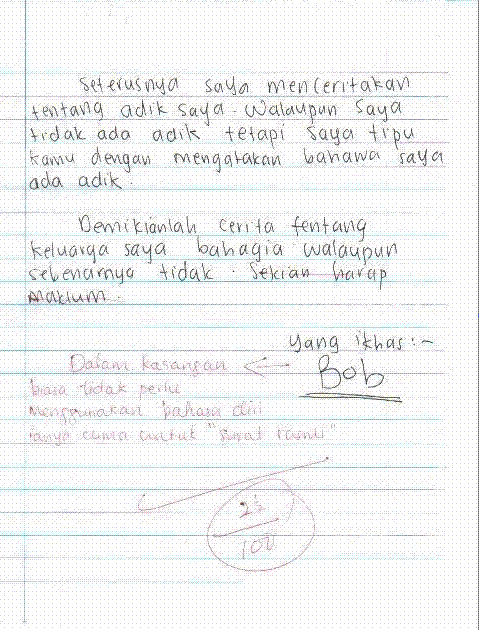 Seterusnya saya menceritakan
tentang adik saya. Walaupun saya
tidak ada adik tetapi saya tipu
kamu dengan mengatakan bahawa saya
ada adik.
Demikianlah cerita tentang
keluarga saya bahagia walaupun
sebenarnya tidak. Sekian harap
maklum.
yang ikhas:~
Bob
Dalam kasangan
biasa tidak perlu
menggunakan bahasa diii
ianya cuma untuk "surat rasmi"
2½
100